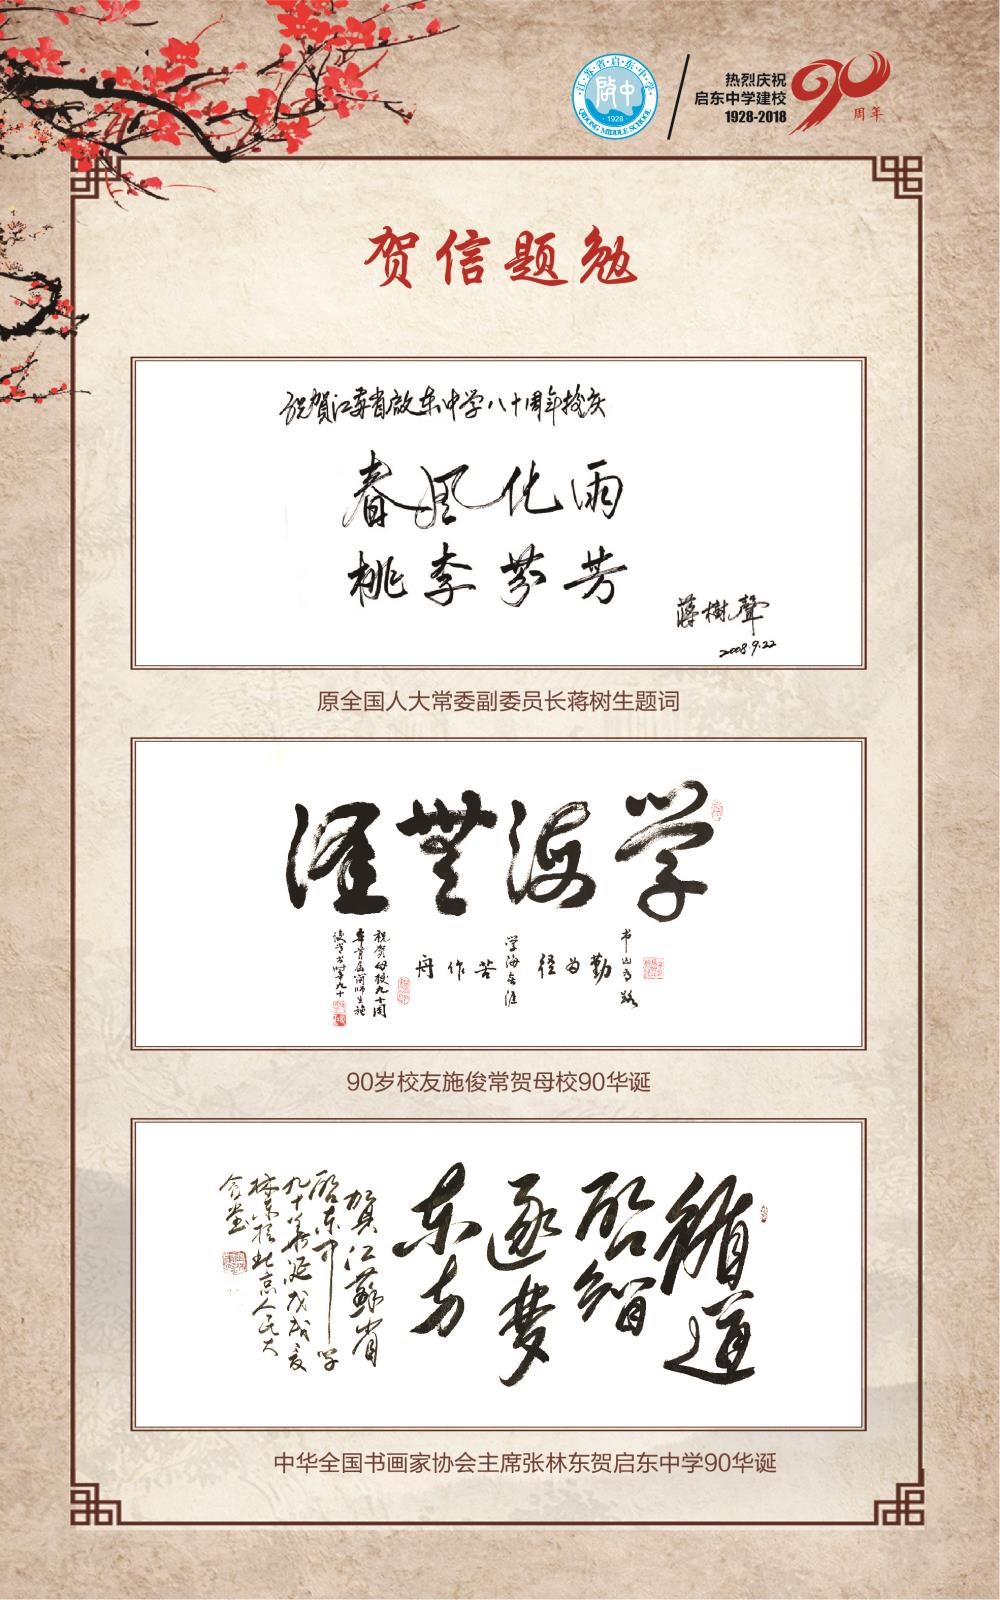 江苏省启东中学
QIDONG MIDDLE SCHOOL
1928
啟中
热烈庆祝
启东中学建校
1928-2018
90
周年
贺信题勉
祝賀江苏省啟东中学八十周年校庆
春风化雨
桃李芬芳
蔣樹聲
2008.9.22
原全国人大常委副委员长蒋树生题词
学海無涯
书山有路
勤为径
学海无涯
苦作舟
祝贺母校九十周
年首届简师生施
俊常书时年九十
90岁校友施俊常贺母校90华诞
循道
启智
逐梦
东方
贺江蘇省
启东中学
九十华诞戊戌夏
林东于北京人民大
会堂
中华全国书画家协会主席张林东贺启东中学90华诞